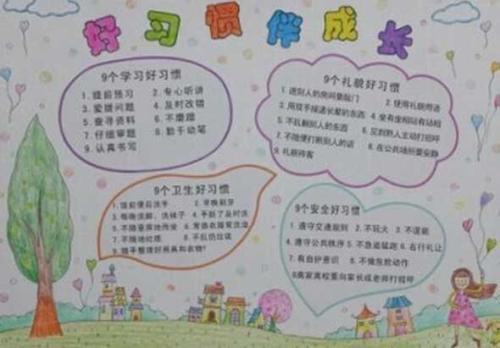 好习惯伴成长
9个学习好习惯
1. 提前预习 2. 专心听讲
3. 爱提问题 4. 及时改错
5. 查寻资料 6. 不磨蹭
7. 仔细审题 8. 勤于动笔
9. 认真书写
9个礼貌好习惯
1. 进别人的房间要敲门 2. 使用礼貌用语
3. 用双手接递长辈的东西 4. 坐有坐相站有站相
5. 不乱翻别人的东西 6. 见到熟人主动打招呼
7. 不随便打断别人的话 8. 在公共场所要安静
9. 礼貌待客
9个卫生好习惯
1. 饭前便后洗手 2. 早晚刷牙
3. 每晚洗脚、洗袜子 4. 手脏了及时洗
5. 不随意席地而坐 6. 常换衣服常洗澡
7. 不随地吐痰 8. 不乱扔垃圾
9. 随手整理好用具和衣物
9个安全好习惯
1. 遵守交通规则 2. 不玩火 3. 不湿
4. 遵守公共秩序 5. 不急追猛跑 6. 右行礼让
7. 有自护意识 8. 不做危险动作
9离家离校要向家长或老师打招呼